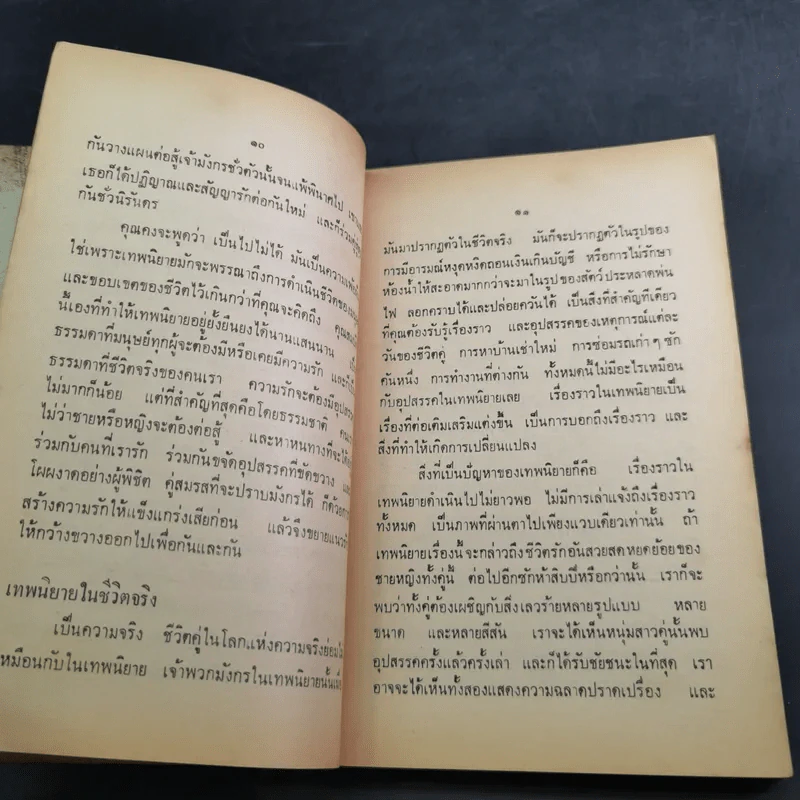 ๑๐
กันวางแผนต่อสู้เจ้ามังกรชั่วตัวนั้นจนแพ้พินาศไป
เธอก็ได้ปฏิญาณและสัญญารักต่อกันใหม่ และก็ร่วม
กันชั่วนิรันดร
คุณคงจะพูดว่า เป็นไปไม่ได้ มันเป็นความเพ้อ
ใช่เพราะเทพนิยายมักจะพรรณาถึงการดำเนินชีวิตของ
และขอบเขตของชีวิตไว้เกินกว่าที่คุณจะคิดถึง
นี้เองที่ทำให้เทพนิยายอยู่ยั้งยืนยงได้นานแสนนาน
ธรรมดาที่มนุษย์ทุกผู้จะต้องมีหรือเคยมีความรัก
ธรรมดาที่ชีวิตจริงของคนเรา ความรักจะต้องมี
ไม่มากก็น้อย แต่ที่สำคัญที่สุดคือโดยธรรมชาติ
ไม่ว่าชายหรือหญิงจะต้องต่อสู้ และหาหนทางที่จะได้
ร่วมกับคนที่เรารัก ร่วมกันขจัดอุปสรรคที่ขัดขวาง
โผผงาดอย่างผู้พิชิต คู่สมรสที่จะปราบมังกรได้
สร้างความรักให้แข็งแกร่งเสียก่อน แล้วจึงขยาย
ให้กว้างขวางออกไปเพื่อกันและกัน
เทพนิยายในชีวิตจริง
เป็นความจริง ชีวิตคู่ในโลกแห่งความจริงย่อม
เหมือนกับในเทพนิยาย เจ้าพวกมังกรในเทพนิยายนั้น
๑๑
มันมาปรากฏตัวในชีวิตจริง มันก็จะปรากฏตัวในรูปของ
การมีอารมณ์หงุดหงิดถอนเงินเกินบัญชี หรือการไม่รักษา
ห้องน้ำให้สะอาดมากกว่าจะมาในรูปของสัตว์ ประหลาดพ่น
ไฟ ลอกคราบได้และปล่อยควันได้ เป็นสิ่งที่สำคัญทีเดียว
ที่คุณต้องรับรู้เรื่องราว และอุปสรรคของเหตุการณ์แต่ละ
วันของชีวิตคู่ การหาบ้านเช่าใหม่ การซ่อมรถเก่า ๆ ซัก
คันหนึ่ง การทำงานที่ต่างกัน ทั้งหมดนี้ไม่มีอะไรเหมือน
กับอุปสรรคในเทพนิยายเลย เรื่องราวในเทพนิยายเป็น
เรื่องที่ต่อเติมเสริมแต่งขึ้น เป็นการบอกถึงเรื่องราว และ
สิ่งที่ทำให้เกิดการเปลี่ยนแปลง
สิ่งที่เป็นปัญหาของเทพนิยายก็คือ เรื่องราวใน
เทพนิยายดำเนินไปไม่ยาวพอ ไม่มีการเล่าแจ้งถึงเรื่องราว
ทั้งหมด เป็นภาพที่ผ่านตาไปเพียงแวบเดียวเท่านั้น ถ้า
เทพนิยายเรื่องนี้จะกล่าวถึงชีวิตรักอันสวยสดหยดย้อยของ
ชายหญิงทั้งคู่นี้ ต่อไปอีกซักห้าสิบปีหรือกว่านั้น เราก็จะ
พบว่าทั้งคู่ต้องเผชิญกับสิ่งเลวร้ายหลายรูปแบบ หลาย
ขนาด และหลายสีสัน เราจะได้เห็นหนุ่มสาวคู่นั้นพบ
อุปสรรคครั้งแล้วครั้งเล่า และก็ได้รับชัยชนะในที่สุด เรา
อาจจะได้เห็นทั้งสองแสดงความฉลาดปราดเปรื่อง และ